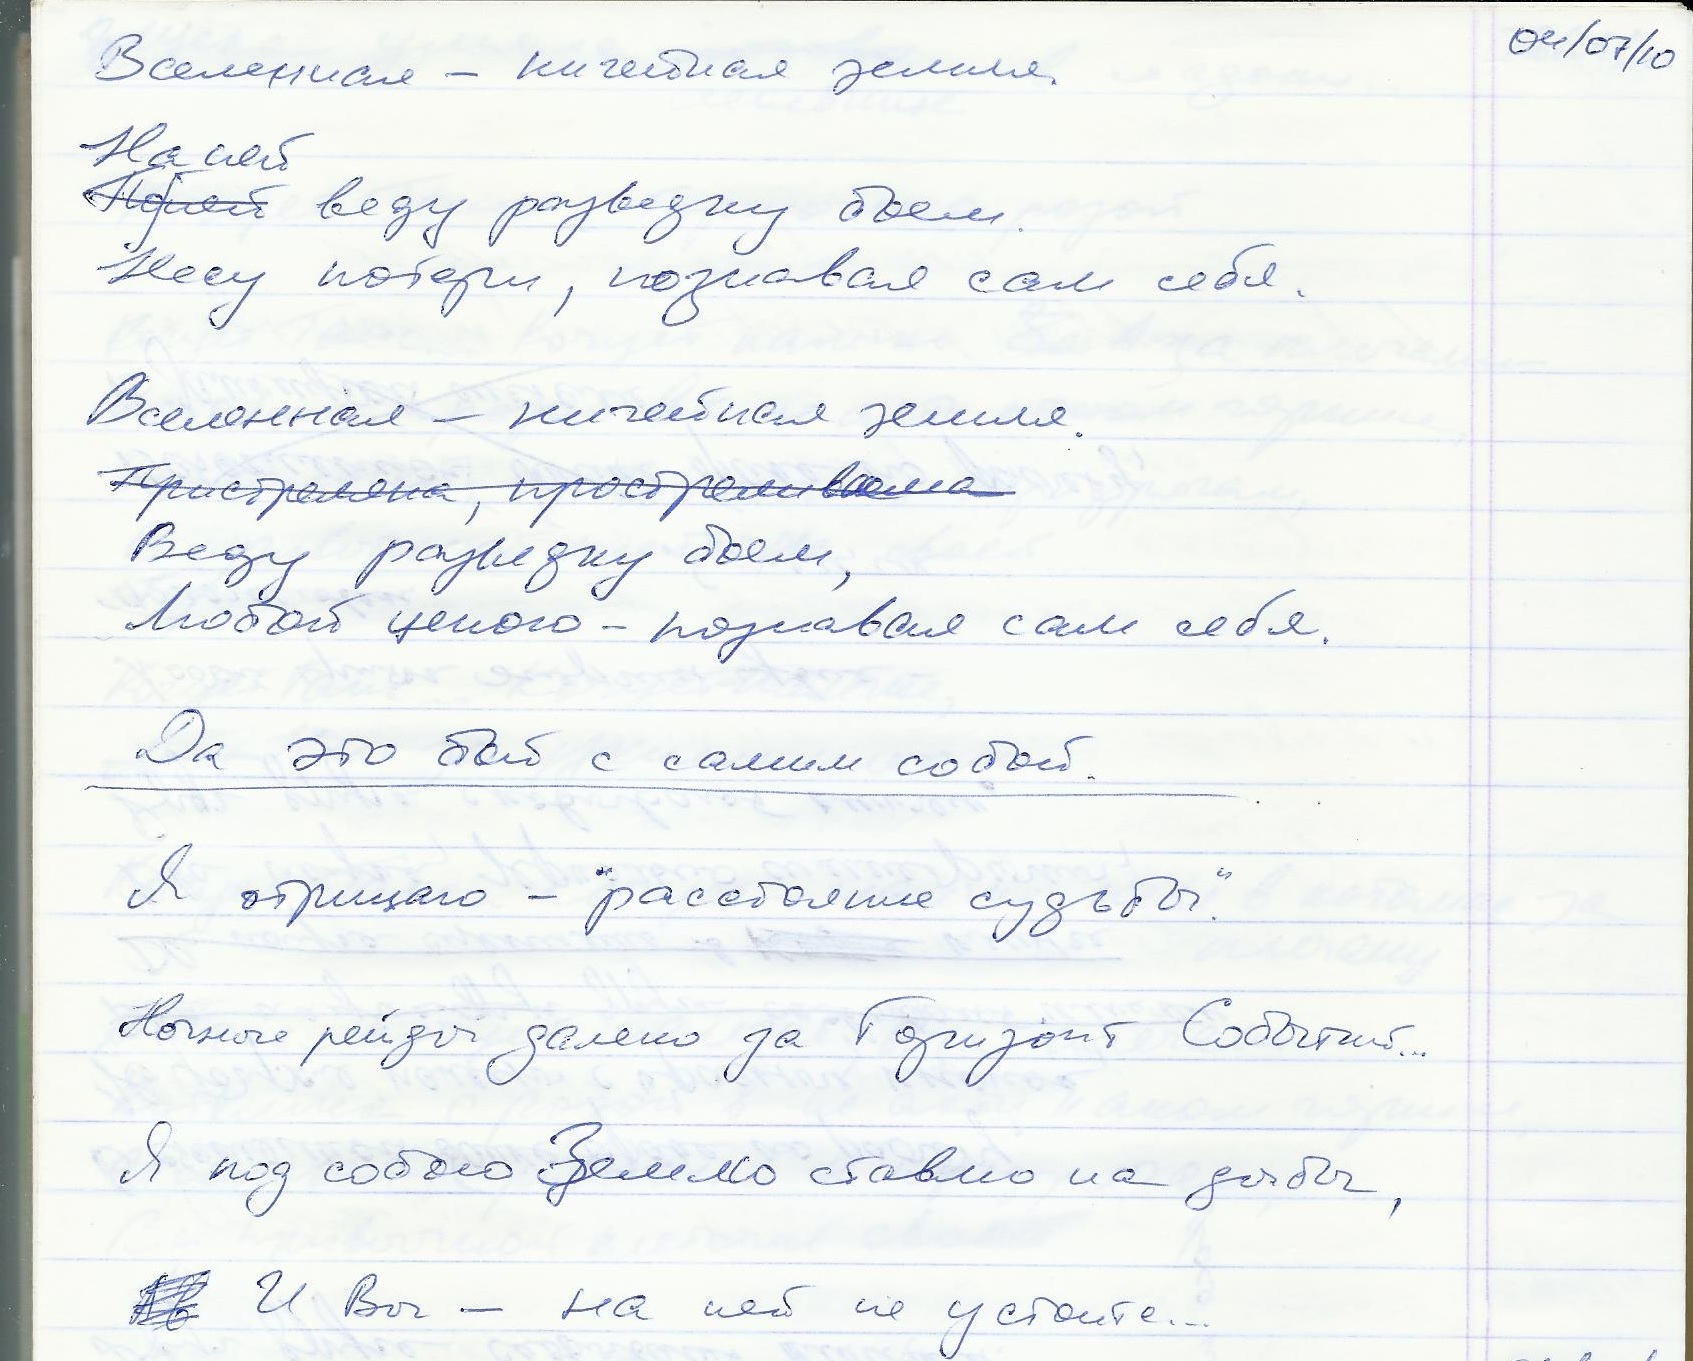 04/07/10
Вселенная – ничейная земля.
На ней
По ней веду разведку боем.
Несу потери, познавая сам себя.
Вселенная – ничейная земля.
Пристреляна, простреливаема
Веду разведку боем,
Любой ценою – познавая сам себя.
Да это бой с самим собой.
Я отрицаю – "расстояние судьбы".
Ночные рейды далеко за Горизонт Событий...
Я под собою Землю ставлю на дыбы,
И Вы – на ней не устоите...